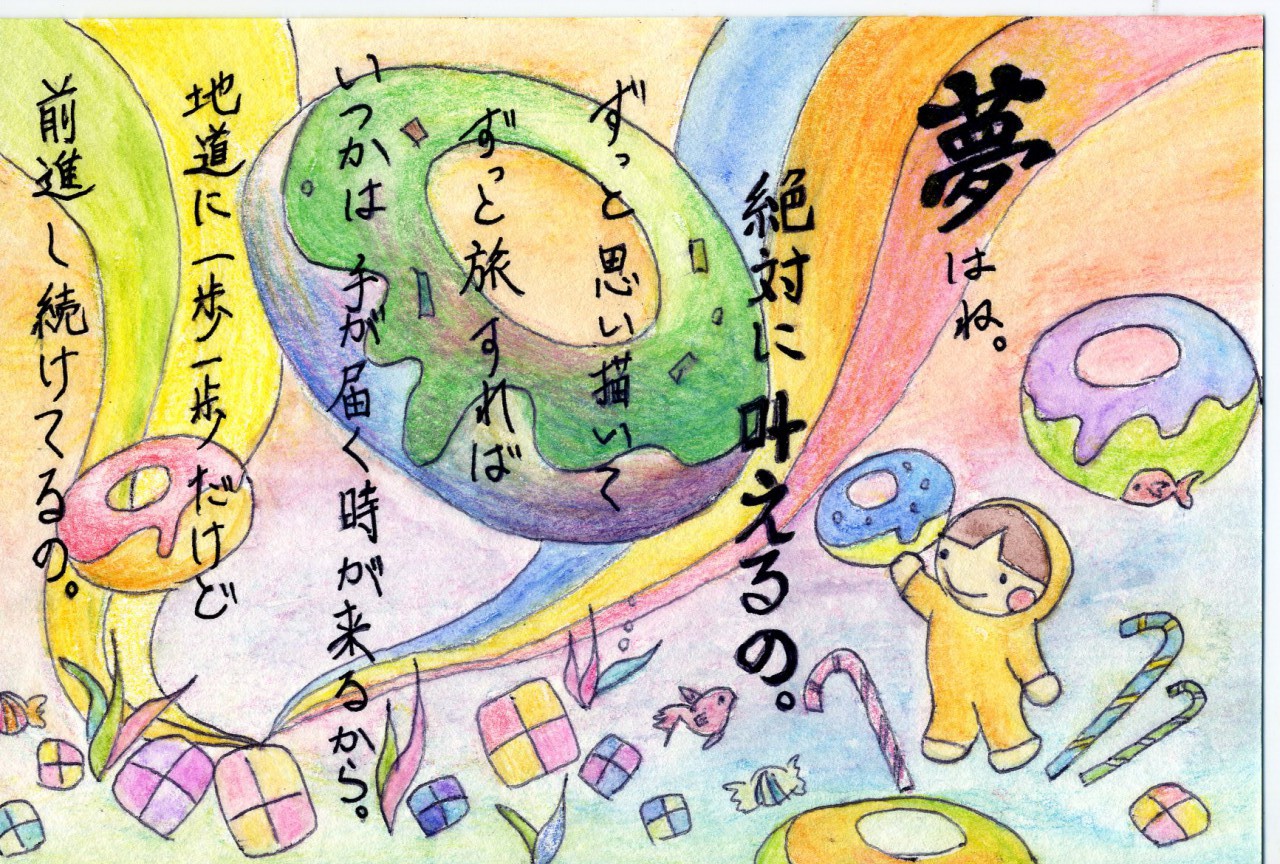 夢はね。
絶対に叶えるの。
ずっと思い描いて
ずっと旅すれば
いつかは手が届く時が来るから。
地道に一歩一歩だけど
前進し続けてるの。